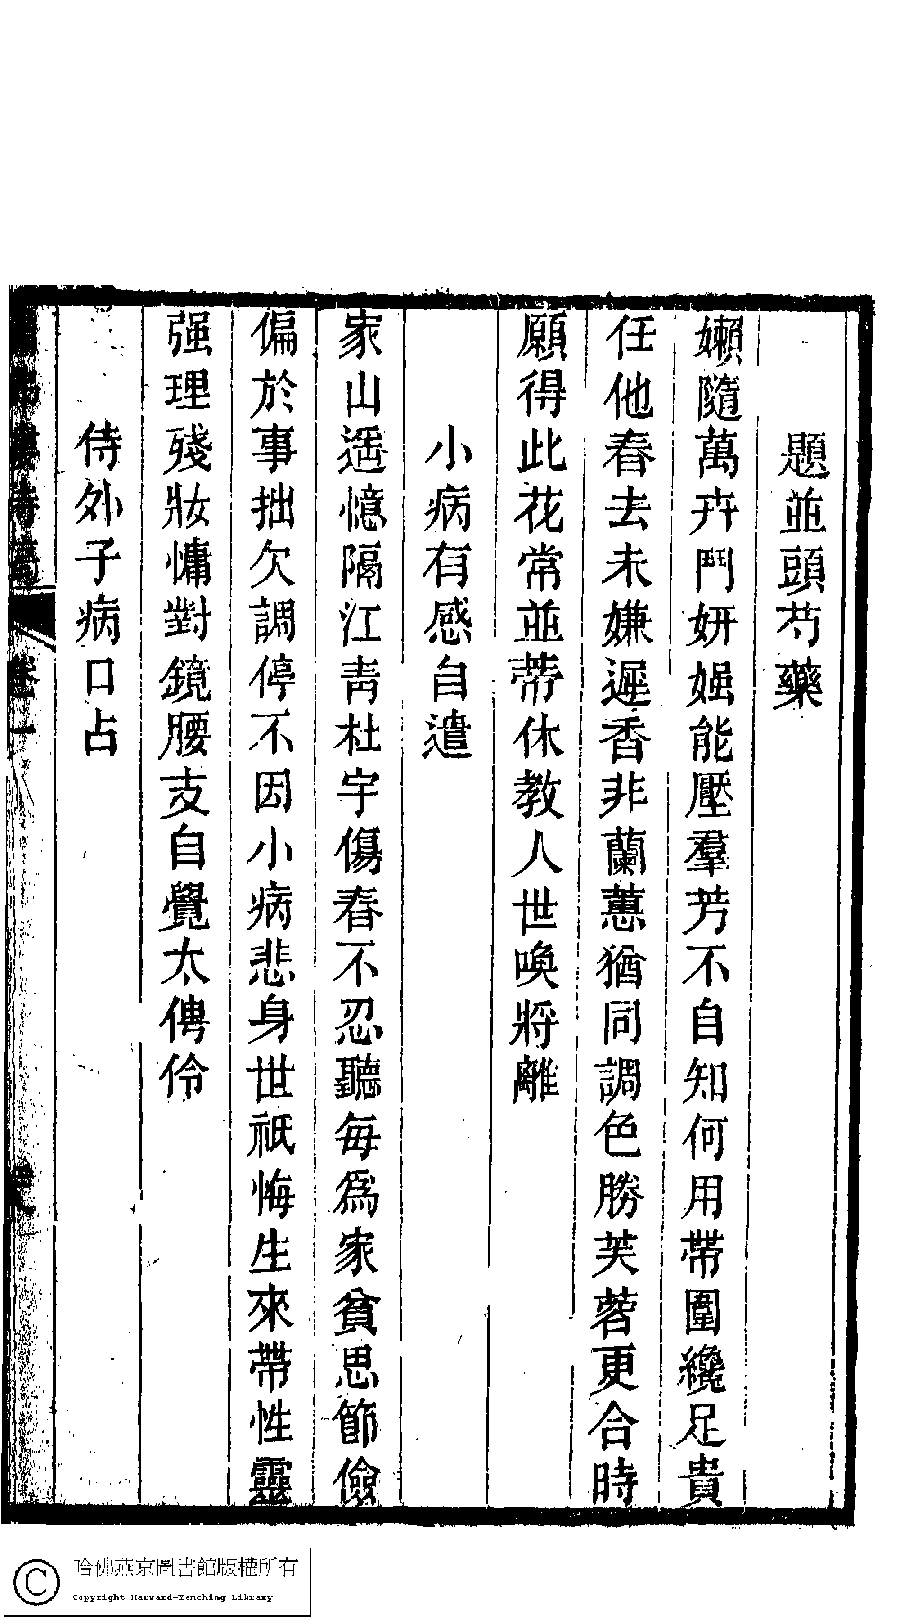 題並頭芍藥
嬾隨萬卉鬥妍媸能壓羣芳不自知何用帶圍纔足貴
任他春去未嫌遲香非蘭蕙猶同調色勝芙蓉更合時
願得此花常並蒂休教人世喚將離
小病有感自遣
家山遥憶隔江靑杜宇傷春不忍聽每爲家貧思節儉
偏於事拙欠調停不因小病悲身世祇悔生來帶性靈
强理殘妝慵對鏡腰支自覺太俜伶
侍外子病口占
卷一
哈佛燕京圖書館版權所有
Copyright Harvard-Yenching Library